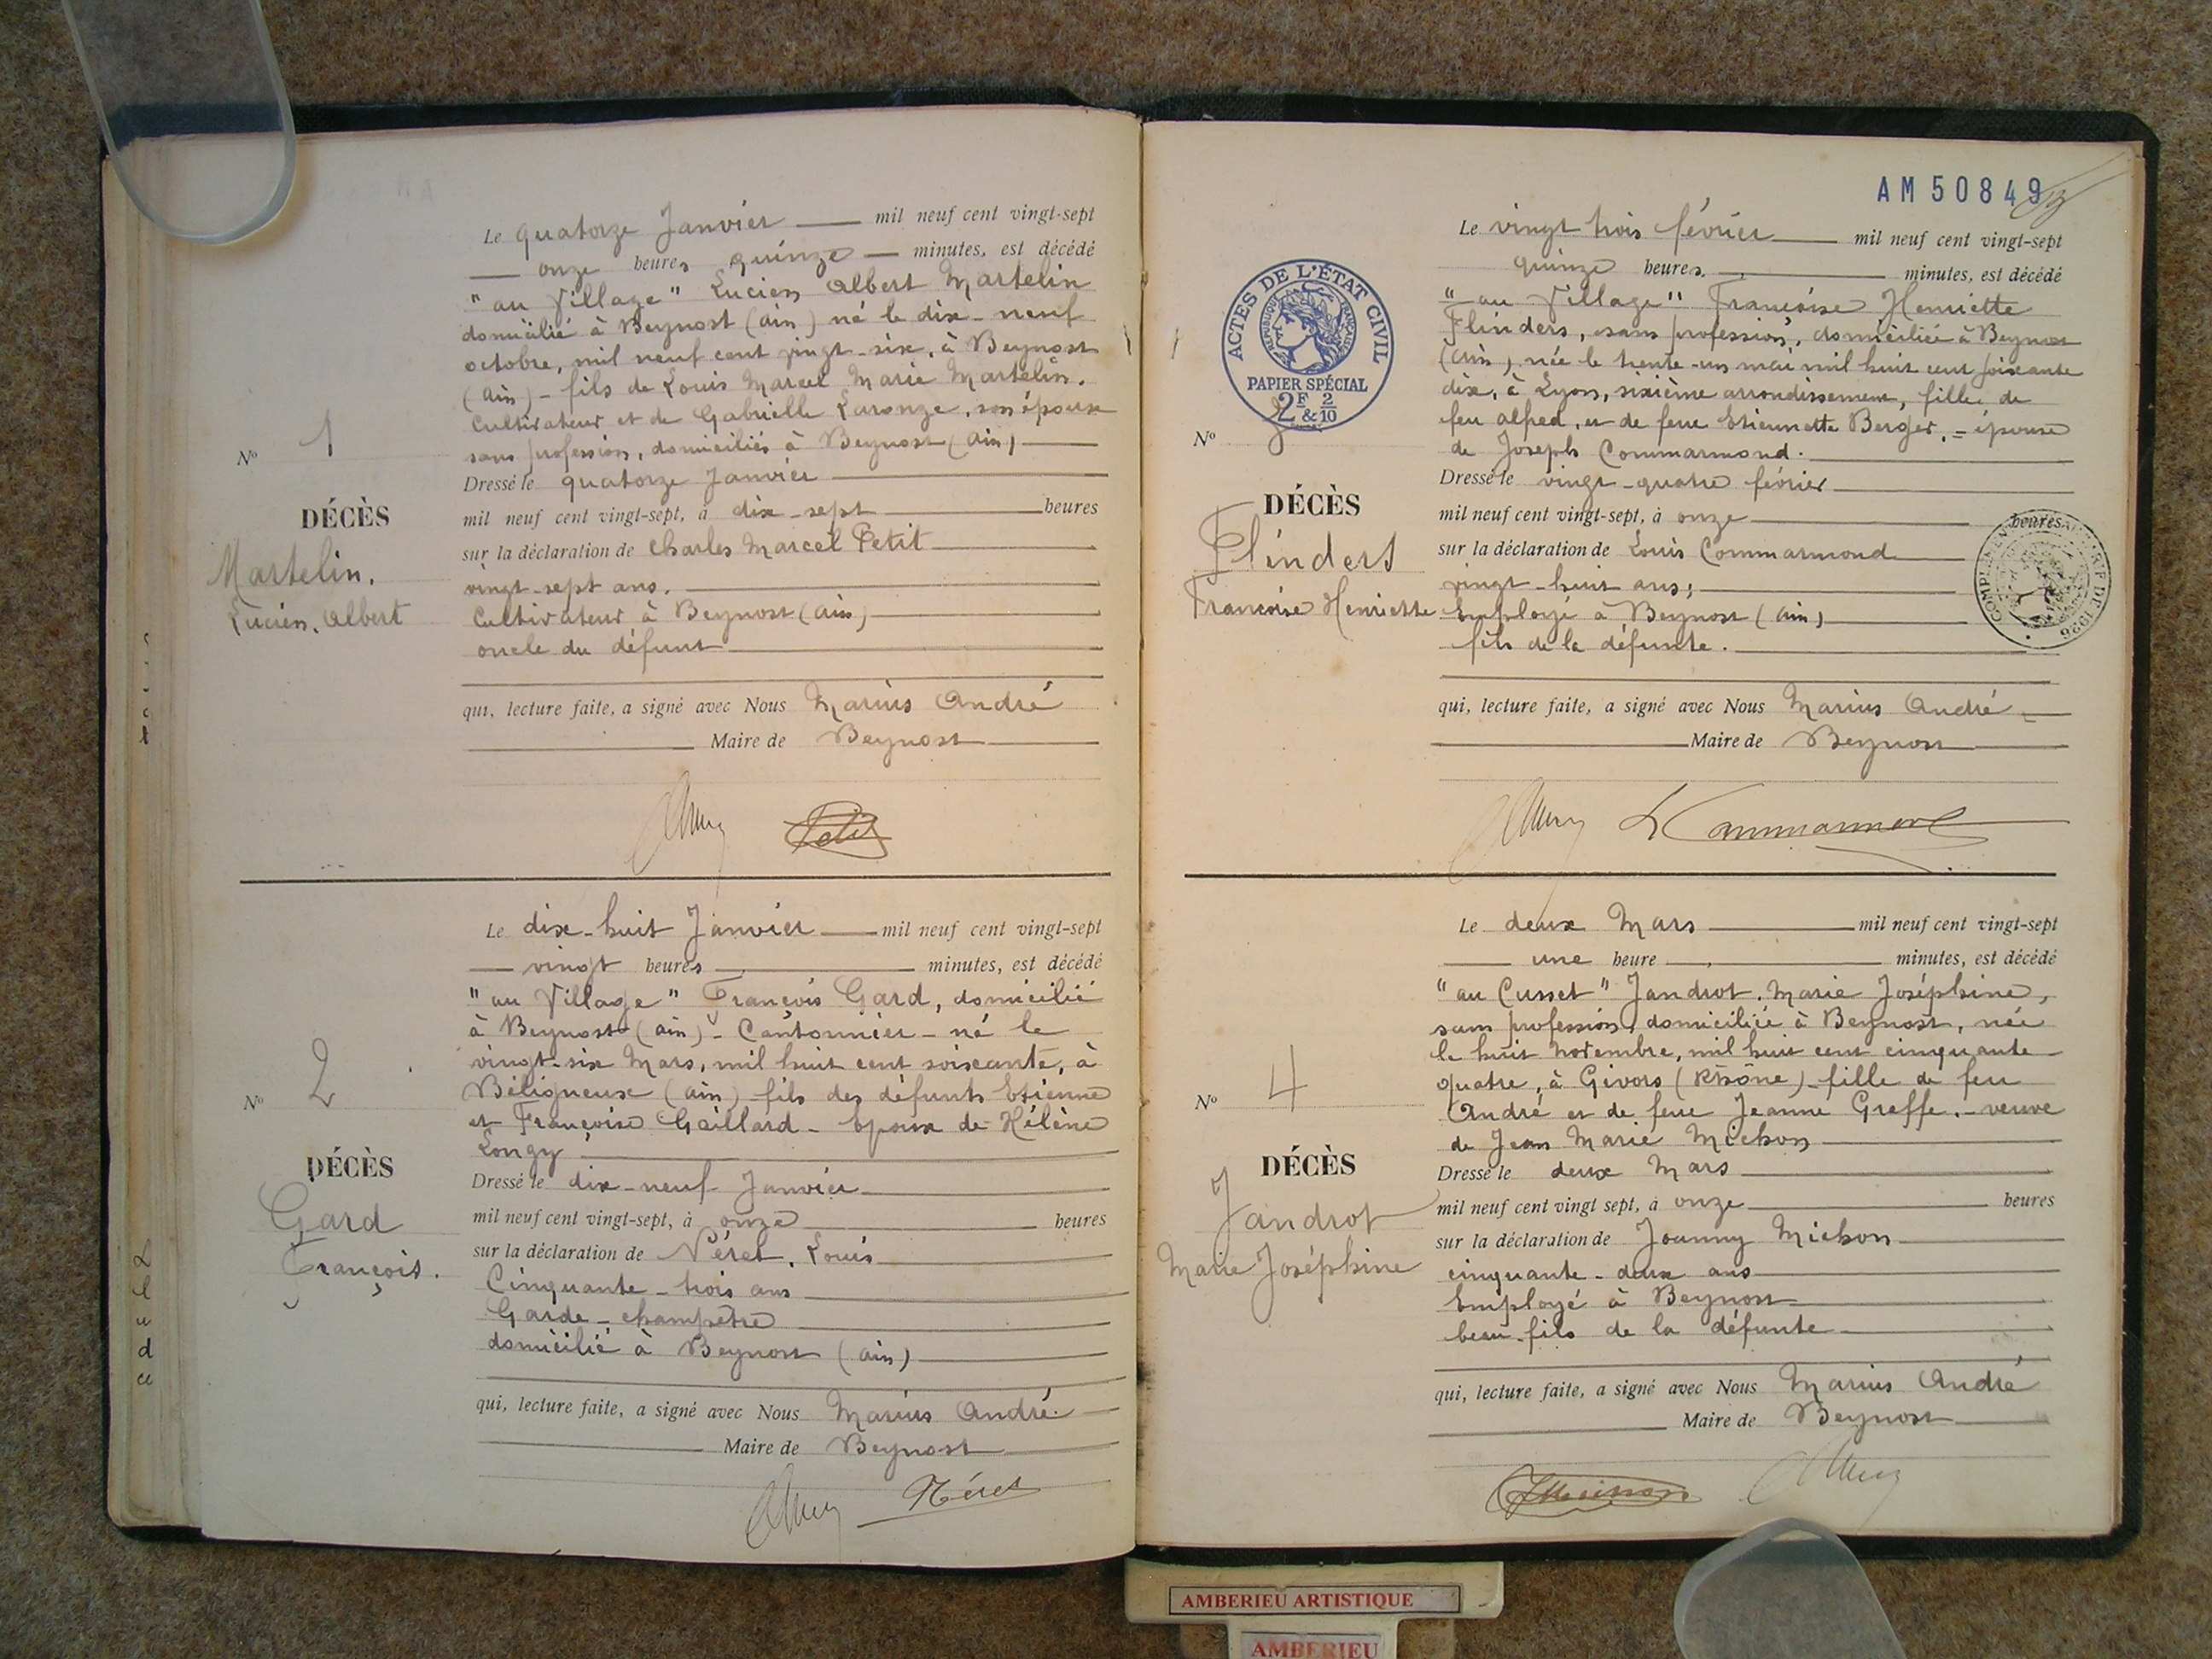 Le quatorze Janvier mil neuf cent vingt-sept
onze heures quinze minutes, est décédé
"au Village" Lucien Albert Martelin
domicilié à Beynost (ain) né le dix-neuf
octobre, mil neuf cent vingt-six, à Beynost
(Ain) - fils de Louis Marcel Marie Martelin.
Cultivateur et de Gabrielle Laronze, son épouse
sans profession, domiciliés à Beynost (ain)
Dressé le quatorze Janvier
mil neuf cent vingt-sept, à dix-sept heures
sur la déclaration de Charles Marcel Petit
vingt-sept ans.
Cultivateur à Beynost (ain)
oncle du défunt
qui, lecture faite, a signé avec Nous Marius André
Maire de Beynost
Petit
No 1
DÉCÈS
Martelin.
Lucien, Albert
Le dix-huit Janvier mil neuf cent vingt-sept
vingt heures minutes, est décédé
"au Village" François Gard, domicilié
à Beynost (ain) - Cantonnier - né le
vingt-six Mars, mil huit cent soixante, à
Béligneux (ain) - fils des défunts Etienne
et Françoise Gaillard - époux de Hélène
Longy
Dressé le dix-neuf Janvier
mil neuf cent vingt-sept, à onze heures
sur la déclaration de Néret, Louis
Cinquante-trois ans
Garde-champêtre
domicilié à Beynost (ain)
qui, lecture faite, a signé avec Nous Marius André.
Maire de Beynost
Néret
No 2
DÉCÈS
Gard
François.
AM 50849
Le vingt trois février mil neuf cent vingt-sept
quinze heures, minutes, est décédé
"au Village" Françoise Henriette
Flinders, sans profession, domiciliée à Beynost
(Ain), née le trente-un mai mil huit cent soixante
dix, à Lyon, sixième arrondissement, fille de
feu Alfred, et de feue Etiennette Berger, = épouse
de Joseph Commarmond.
Dressé le vingt-quatre février
mil neuf cent vingt-sept, à onze heures
sur la déclaration de Louis Commarmond
vingt-huit ans;
Employé à Beynost (ain)
fils de la défunte.
qui, lecture faite, a signé avec Nous Marius André
Maire de Beynost
L Commarmond
ACTES DE L'ÉTAT CIVIL
RÉPUBLIQUE FRANÇAISE
PAPIER SPÉCIAL
2F & 2/10
No 3
DÉCÈS
Flinders
Françoise Henriette
Le deux Mars mil neuf cent vingt-sept
une heure, minutes, est décédé
"au Cusset" Jandrot. Marie Joséphine,
sans profession, domiciliée à Beynost, née
le huit Novembre, mil huit cent cinquante-
quatre, à Givors (Rhône) - fille de feu
André et de feue Jeanne Greffe. - veuve
de Jean Marie Michon
Dressé le deux Mars
mil neuf cent vingt sept, à onze heures
sur la déclaration de Joanny Michon
cinquante-deux ans
Employé à Beynost
beau-fils de la défunte
qui, lecture faite, a signé avec Nous Marius André
Maire de Beynost
No 4
DÉCÈS
Jandrot
Marie Joséphine
AMBERIEU ARTISTIQUE
AMBERIEU